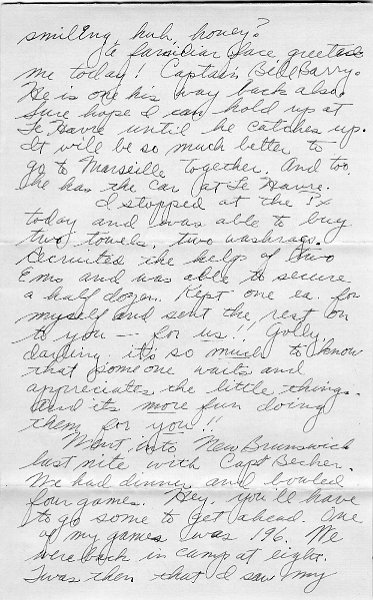 smiling, huh, honey?
A familiar face greeted
me today! Captain Bill Barry.
He is one his way back also.
Sure hope I can hold up at
Le Havre until he catches up.
It will be so much better to
go to Marseille together. And too
he has the car at Le Havre.
I stopped at the Px
today and was able to buy
two towels, two washrags.
Recruited the help of two
Ems and was able to secure
a half dozen. Kept one ea. for
myself and sent the rest on
to you — for us!! Golly
darling it's so much to know
that someone waits and
appreciates the little things.
And its more fun doing
them for you!!
Went into New Brunswick
last nite with Capt Becher.
We had dinner and bowled
four games. Hey, you'll have
to go some to get ahead. One
of my games was 196. We
were back in camp at eight.
Twas then that I saw my